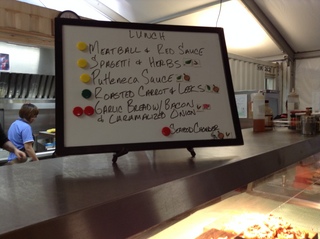 LUNCH
MEATBALL & RED SAUCE
SPAGETTI & HERBS
PUTTENECA SAUCE
ROASTED CARROT & LEEKS
GARLIC BREAD W/ BACON
& CARAMALIZED ONION
SEAFOOD CHOWDER